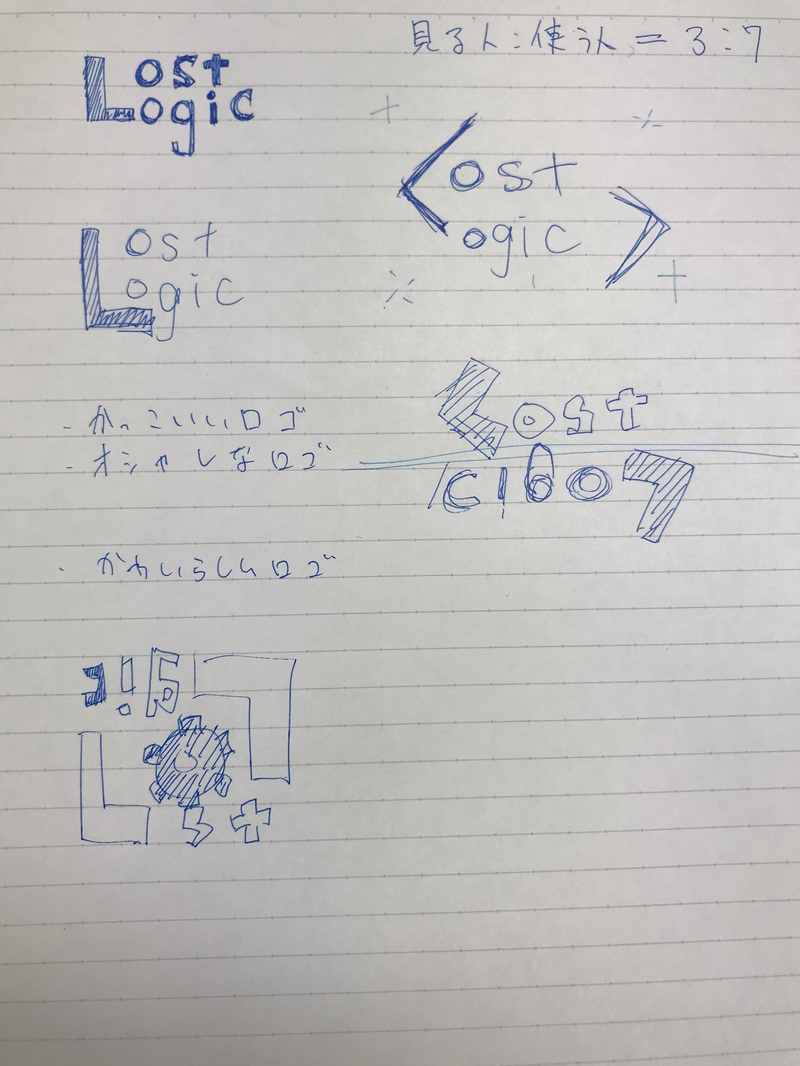 見る人:使う人 = 3:7
Lost
ogic
<ost
ogic >
Lost
ogic
Lost
Logic
- かっこいいロゴ
- オシャレなロゴ
・かわいらしいロゴ
Logic
Lost